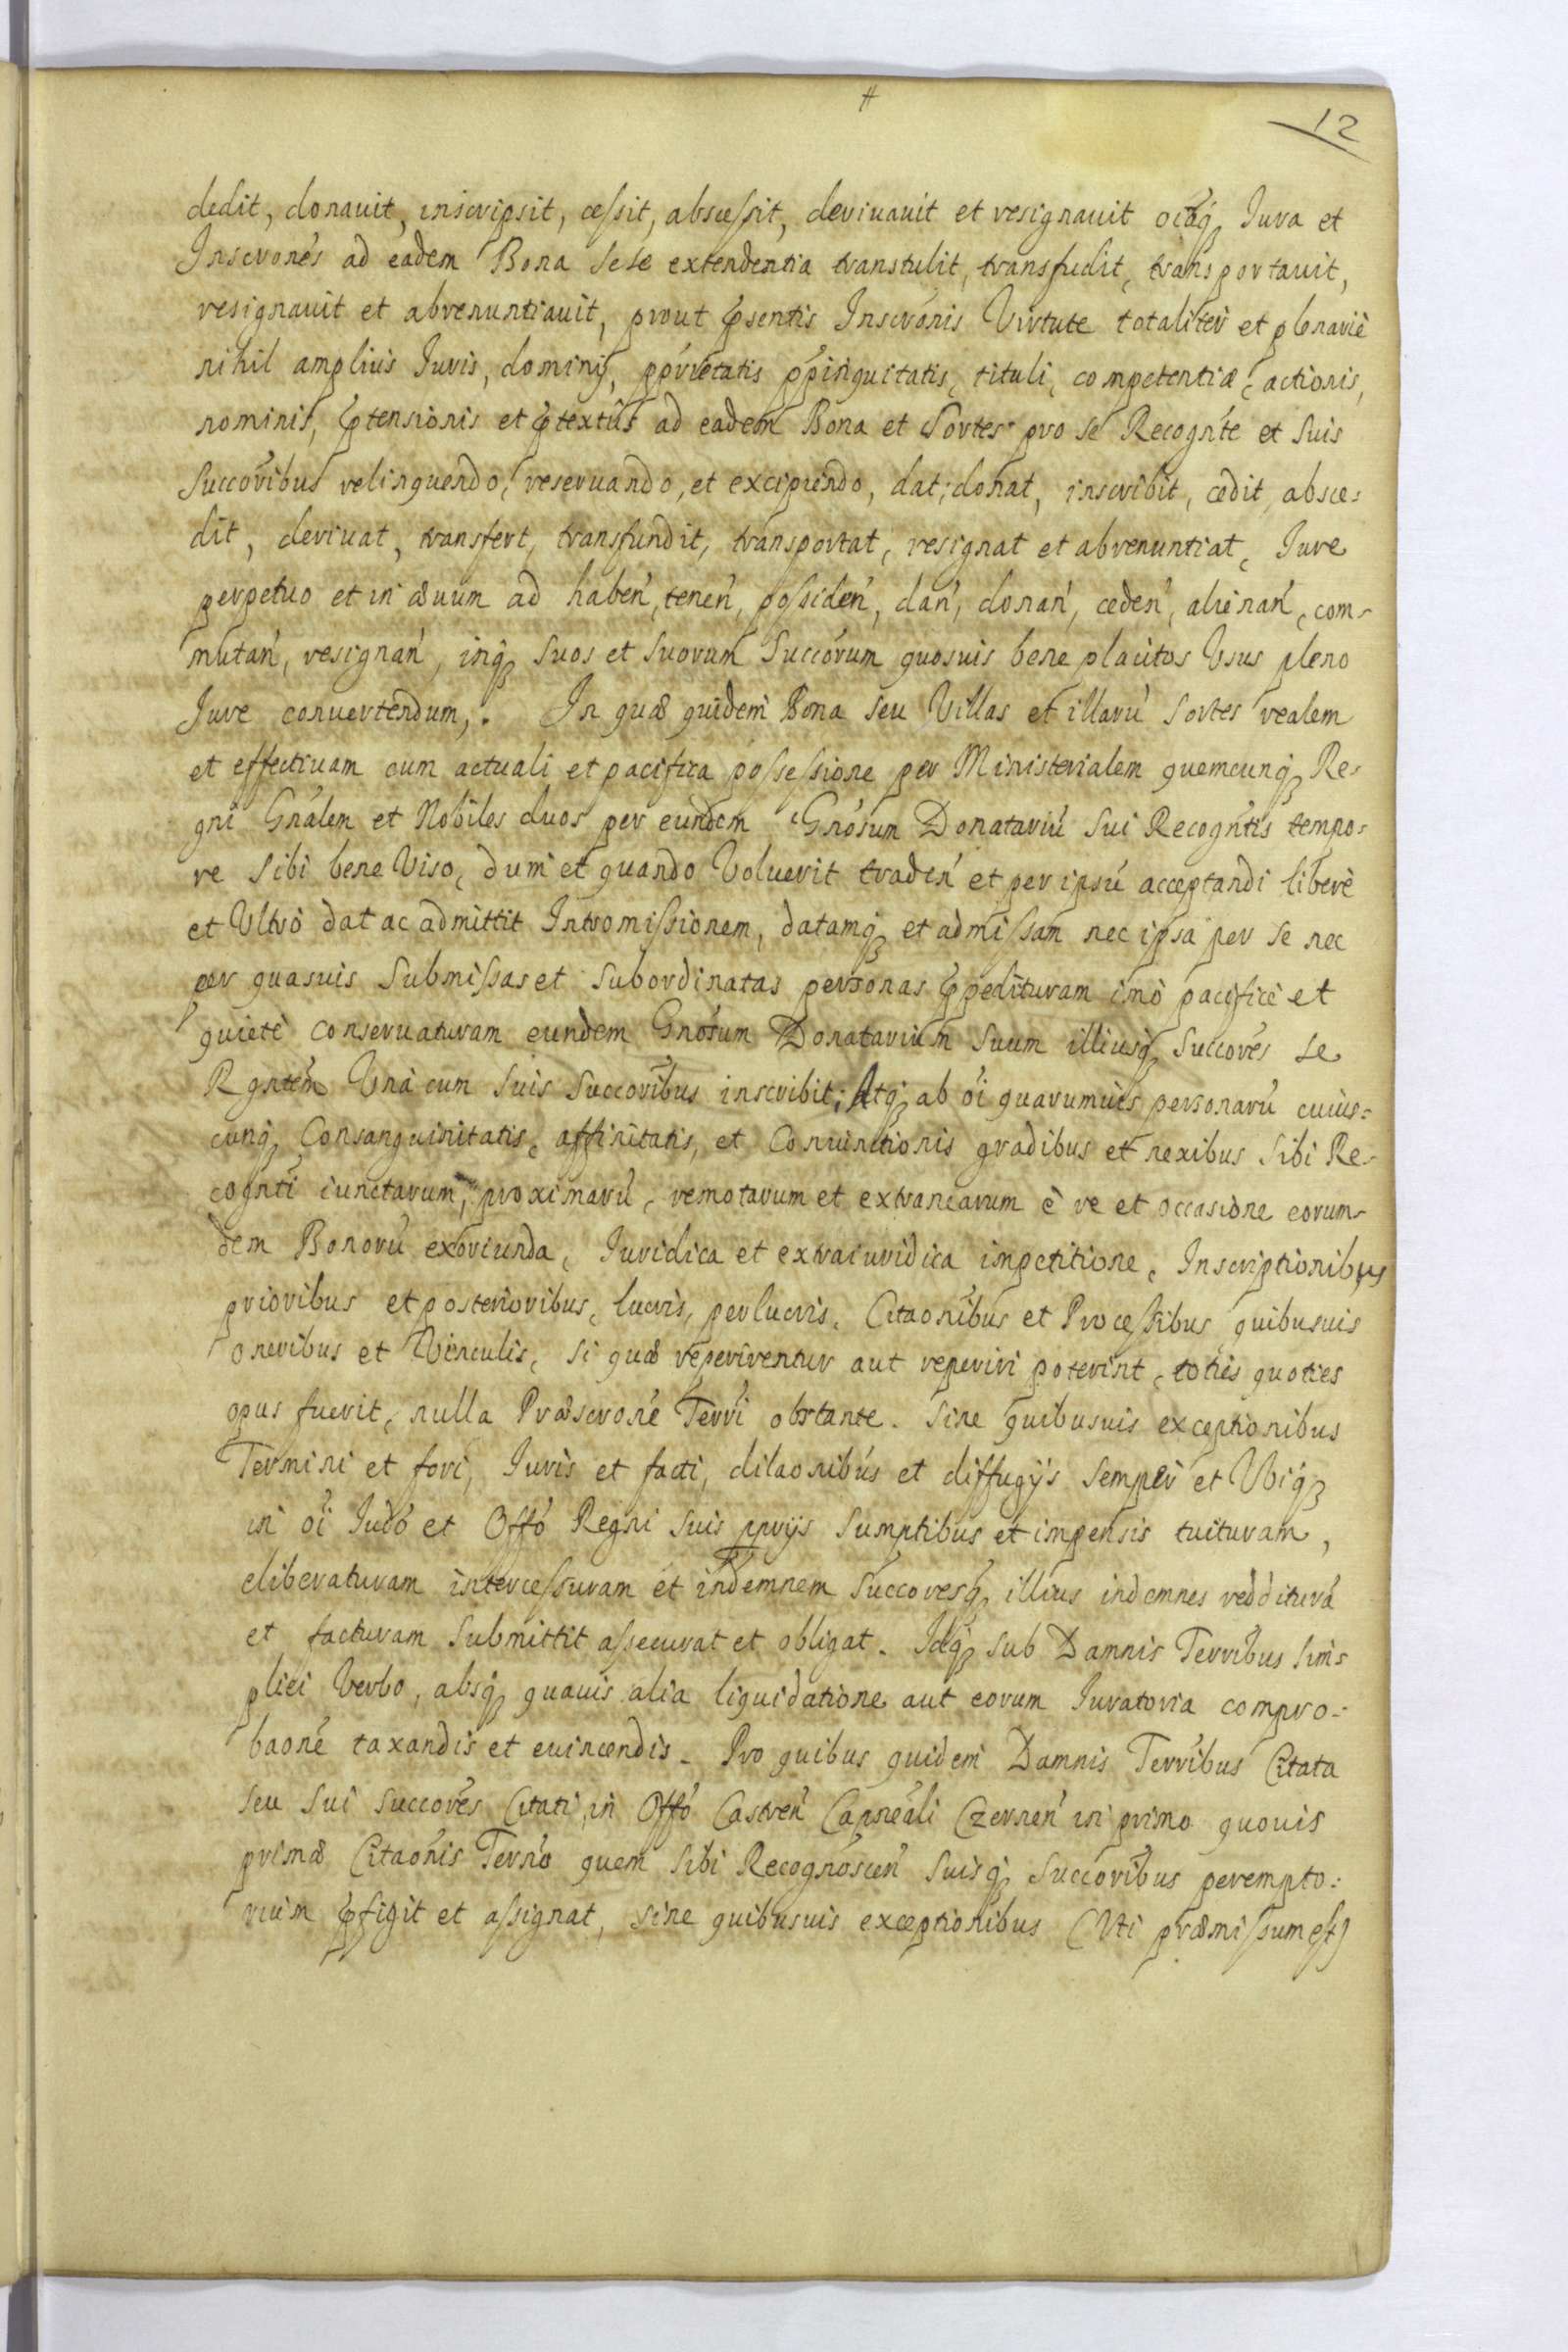 #
12
dedit, donauit, inscripsit, ceſsit, absceſsit, deriuauit et resignauit oiaq́ꝫ Iura et
Inscrones ad eadem Bona sese extendentia transtulit, transfudit, transportauit,
resignauit et abrenuntiauit, prout p̃sentis Inscronis Virtute totaliter et plenariè
nihil amplius Iuris, dominij, pprietatis ppinquitatis, tituli, competentiæ, actionis,
nominis, p̃tensionis et p̃textûs ad eadem Bona et Sortes pro se Recognte et Suis
Succoribus relinquendo, reseruando, et excipiendo, dat, donat, inscribit, cedit, absce-
dit, deriuat, transfert, transfundit, transportat, resignat et abrenuntiat, Iure
perpetuo et in æuum ad haben, tenen, poſsiden, dan, donan, ceden, alienan, com-
mutan, resignan, inq́ꝫ Suos et Suorum Succorum quosuis bene placitos Vsus pleno
Iure conuertendum,. In quæ quidem Bona seu Villas et illarũ Sortes realem
et effectiuam cum actuali et pacifica poſseſsione per Ministerialem quemcunq́ꝫ Re-
gni Gnalem et Nobiles duos per eundem Gnosum Donatariũ Sui Recogntis tempo-
re Sibi bene Viso, dum et quando Voluerit traden et per ipsũ acceptandi liberè
et Vltrò dat ac admittit Intromiſsionem, datamq́ꝫ et admiſsam nec ipsa per se nec
per quasuis Submiſsas et Subordinatas personas p̃pedituram imò pacificè et
quietè conseruaturam eundem Gnosum Donatarium Suum illiusq́ꝫ Succores se
Rgntem Vnà cum Suis Succoribus inscribit; Atq́ꝫ ab oi quarumuis personarũ cuius-
cunq́ꝫ Consanguinitatis, affinitatis, et Coniunctionis gradibus et nexibus Sibi Re-
cognti iunctarum, proximarũ, remotarum et extranearum è re et occasione eorum-
dem Bonorũ exoriunda, Iuridica et extraiuridica impetitione, Inscriptionibus
prioribus et posterioribus, lucris, perlucris, Citaonibus et Proceſsibus quibusuis
oneribus et Vinculis, si quæ reperirentur aut reperiri poterint, toties quoties
opus fuerit, nulla Præscrone Terri obstante. Sine quibusuis exceptionibus
Termini et fori, Iuris et facti, dilaonibus et diffugijs Semper et Vbiq́ꝫ
in oi Iudo et Offo Regni Suis pprijs Sumptibus et impensis tuituram,
eliberaturam interceſsuram et indemnem Succoresq́ꝫ illius indemnes redditurã
et facturam Submittit aſsecurat et obligat. Idq́ꝫ sub Damnis Terribus Sim-
plici Verbo, absq́ꝫ quauis alia liquidatione aut eorum Iuratoria compro-
baone taxandis et euincendis. Pro quibus quidem Damnis Terribus Citata
seu Sui Succores Citati, in Offo Castren Capneali Czernen in primo quouis
primæ Citaonis Terno quem Sibi Recognoscen Suisq́ꝫ Succoribus perempto-
rium p̃figit et aſsignat, sine quibusuis exceptionibus (Vti præmiſsum eſt)